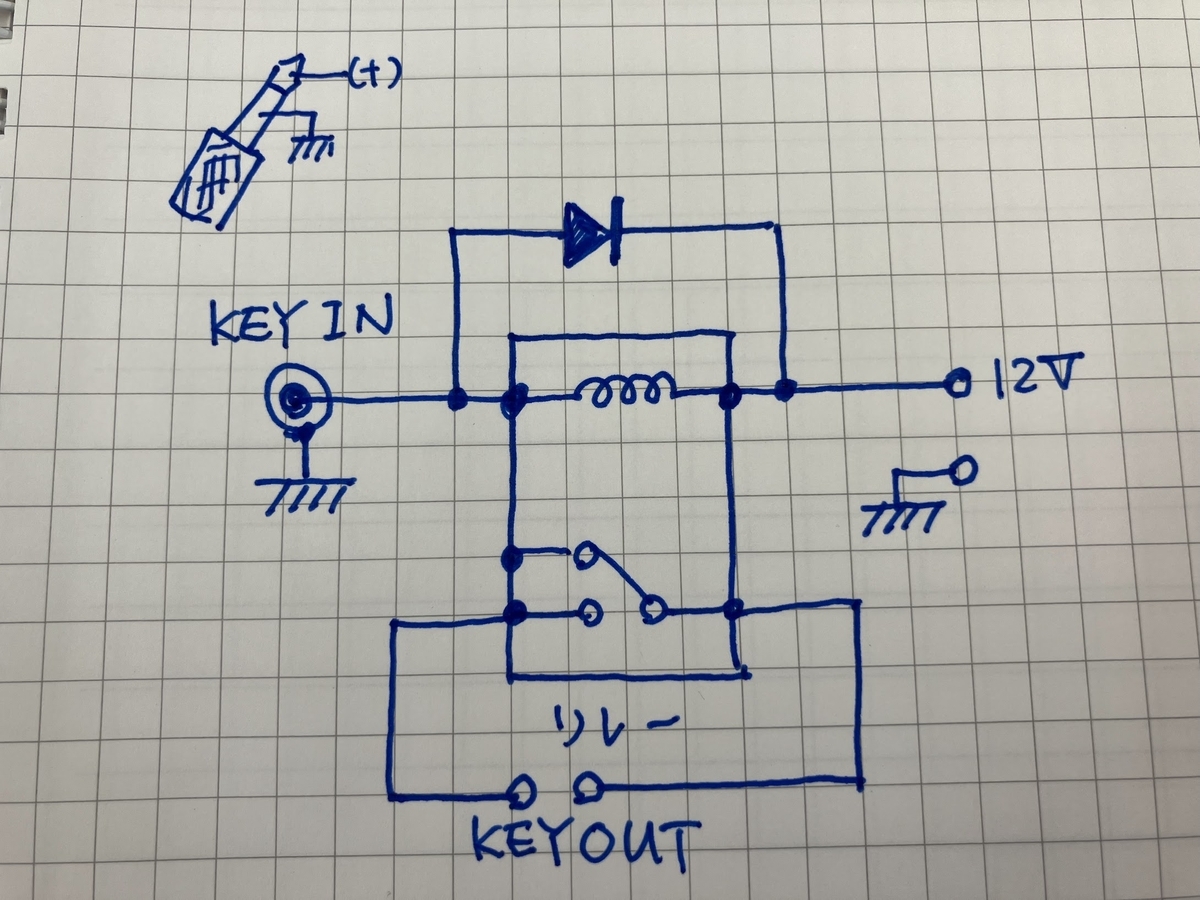 (+)
KEY IN
12V
リレー
KEY OUT